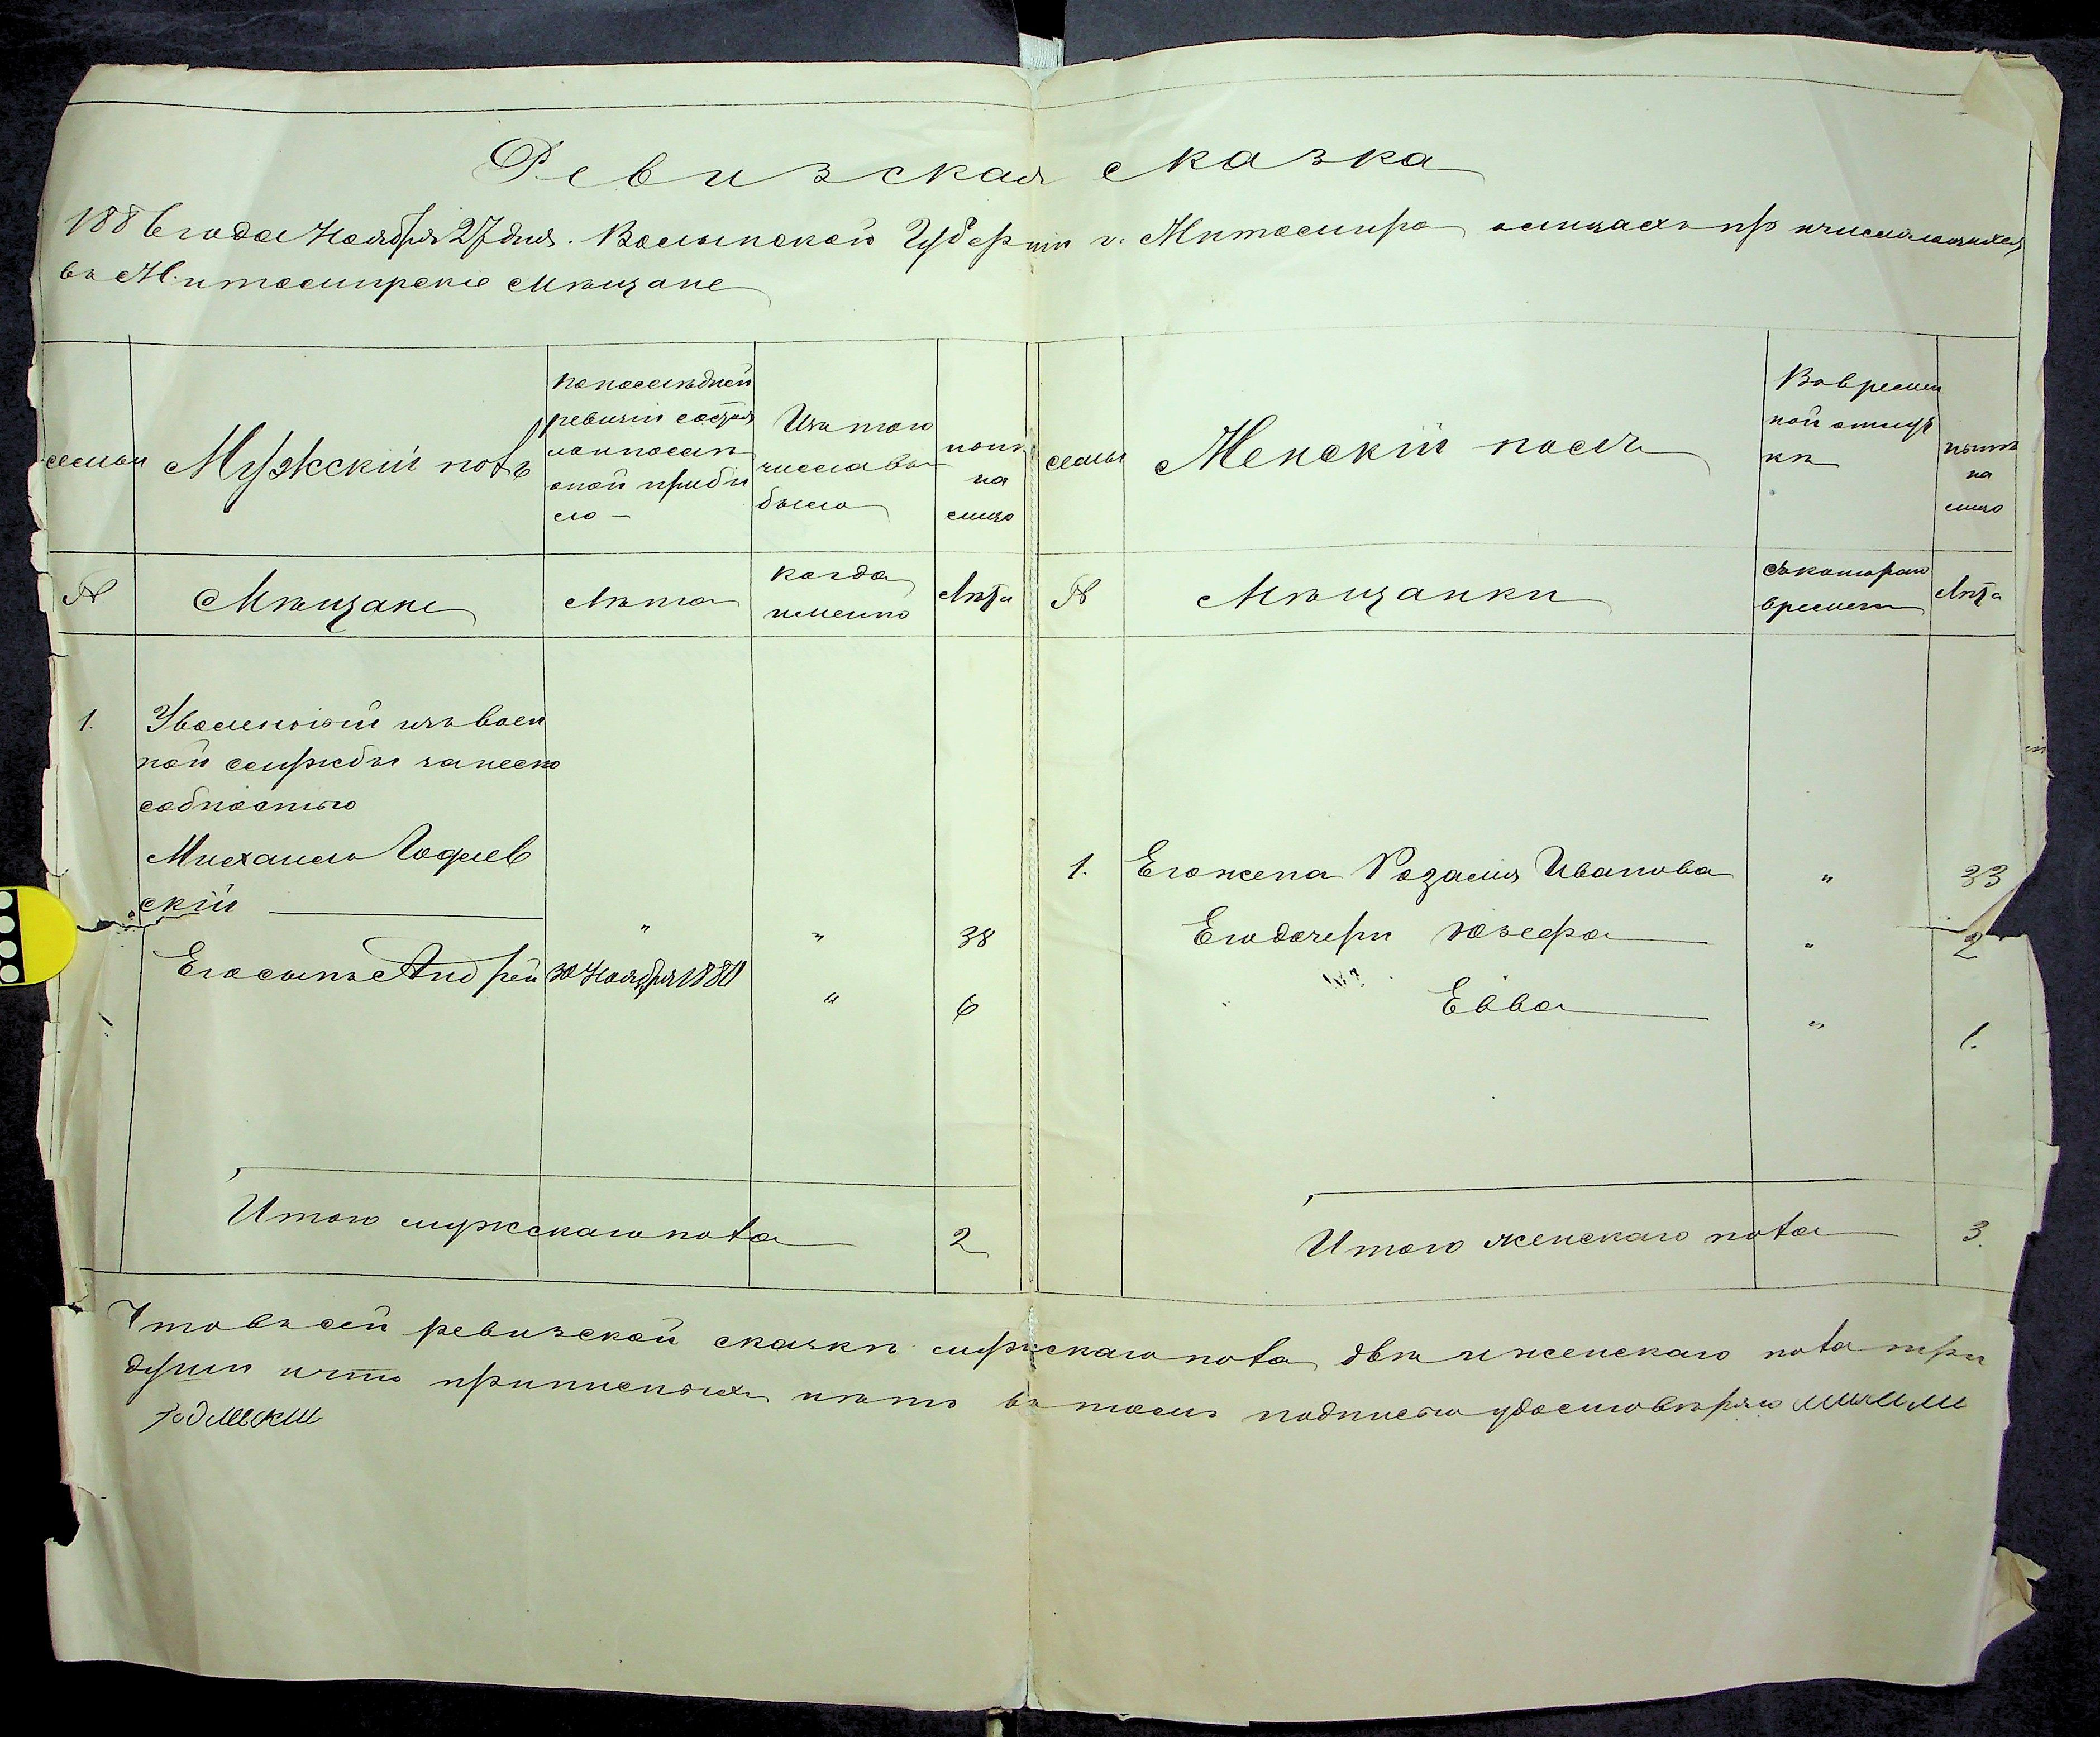 Ревизская сказка
1886 года Ноября 27 дня. Волынской Губерніи г. Житомира о лицахъ пр ичисляющихся
въ Житомирскіе мѣщане
семьи
Мужскій полъ
по последней
ревизіи состоя
ло и после
оной прибы
ло –
Изъ того
числа вы
было
нынѣ
на
лицо
семьи
Женскій полъ
Во времен
ной отлуч
кѣ
нынѣ
на
лицо
№
Мѣщане
Лѣта
когда
именно
Лѣта
№
Мѣщанки
съ котораго
времени
Лѣта
1.
Уволенный изъ воен
ной службы за неспо
собностью
Михаилъ Годлев
скій
"
"
38
Его сынъ Андрей
30 Ноября 1880
"
6
1.
Его жена Розалия Иванова
"
33
Его дочери Юзефа
"
2
Евва
"
1.
Итого мужскаго пола
2
Итого женскаго пола
3.
Что въ сей ревизской сказкѣ мужскаго пола двѣ и женскаго пола три
души и что приписныхъ нѣтъ въ томъ подписью удостовѣряю